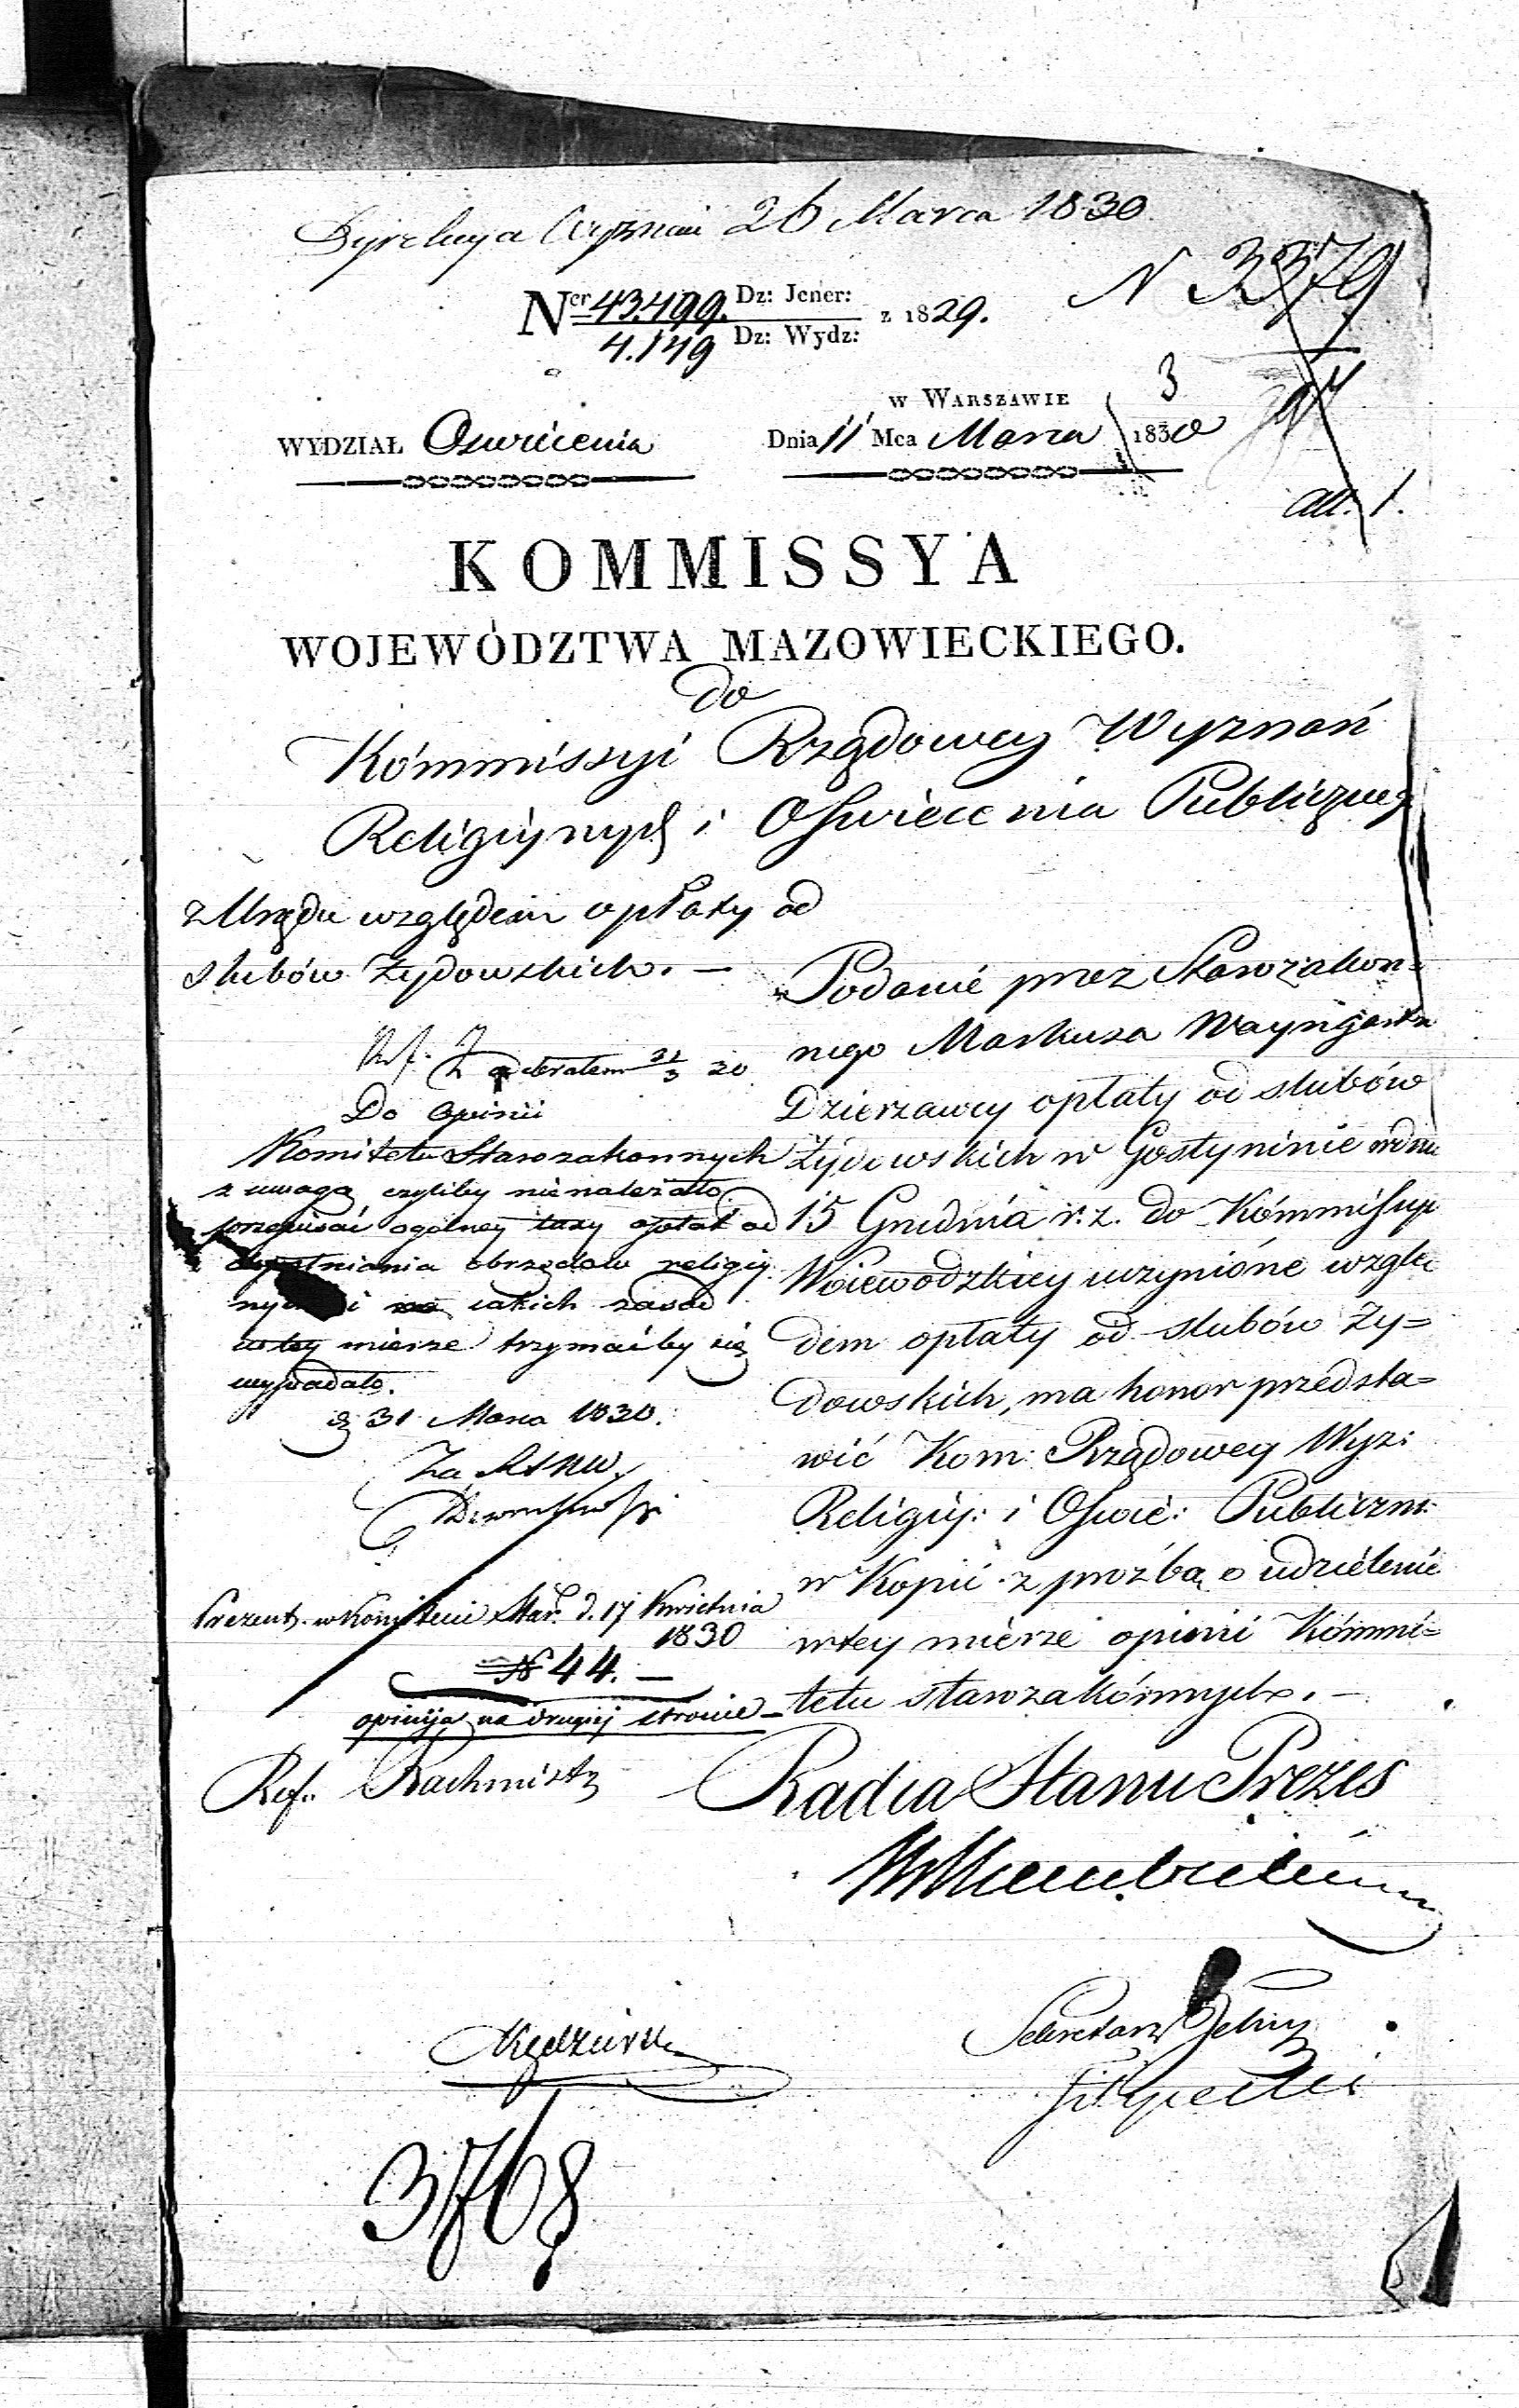 Dyrekcya Wyznań 26 Marca 1830
N 3379
Ner 43499. Dz: Jener: z 1829.
4.149 Dz: Wydz:
w WARSZAWIE
3
WYDZIAŁ Oswiecenia
Dnia 11 Mca Marca 1830
all. 1.
KOMMISSYA
WOJEWÓDZTWA MAZOWIECKIEGO.
do
Kommissyi Rządowey Wyznań
Religiynych i Oswiecenia Publiczneg
z Urzędu względem opłaty od
slubów Żydowskich. —
Podanie przez Starozakon=
nego Markusa Wayngarta
Dzierzawcy opłaty od slubów
Żydowskich w Gostyninie w dniu
15 Grudnia r. z. do Kommissyi
Woiewodzkiey uczynione wzglę
dem opłaty od slubów Ży=
dowskich, ma honor przedsta=
wić Kom: Rządowey Wyz:
Religiy: i Oswie: Publiczn:
w Kopii z proźbą o udzielenie
w tey mierze opinii Kommi=
tetu starozakonnych. —
Radca Stanu Prezes
Sekretarz Jelny
odebrałem 31/3 30
Do Opinii
Komitetu Starozakonnych
z uwagą czyliby nie należało
przepisać ogolney taxy opłat od
dopełniania obrzędow religiy
nych i na iakich zasad
w tey mierze trzymaćby się
wypadało.
d 31 Marca 1830.
Prezent. w Komitecie Star. d. 17 Kwietnia
1830
N 44. —
opinija na drugiej stronie —
Ref.
3768